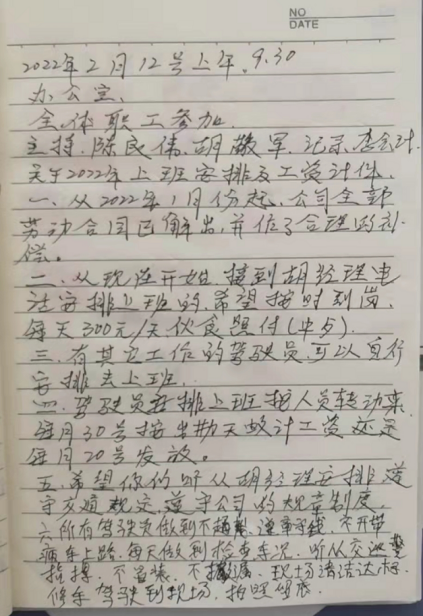 NO
DATE
2022年2月12号上午.9.30
办公室、
全体职工参加
主持.陈良伟.胡敬军.记录李会计
关于2022年上班安排及工资计件.
一、从2022年1月份起、公司全部
劳动合同已解出,并做了合理的补
偿。
二、从现在开始.接到胡经理电
话安排上班的.希望按时到岗、
每天300元/天伙食照付(中歺).
三、有其它工作的驾驶员.可以自行
安排去上班.
四、驾驶员安排上班按人员转动来,
每月30号按出勤天数计工资还是
每月20号发放。
五.希望你们听从胡经理安排.遵
守交通规定,遵守公司的规章制度.
六所有驾驶员做到不超载、遵章守纪,不开带
病车上路.每天做到检查车况.听从交警
指挥、不冒装、不 现场清洁达标.
修车驾驶到现场,拍照留底.